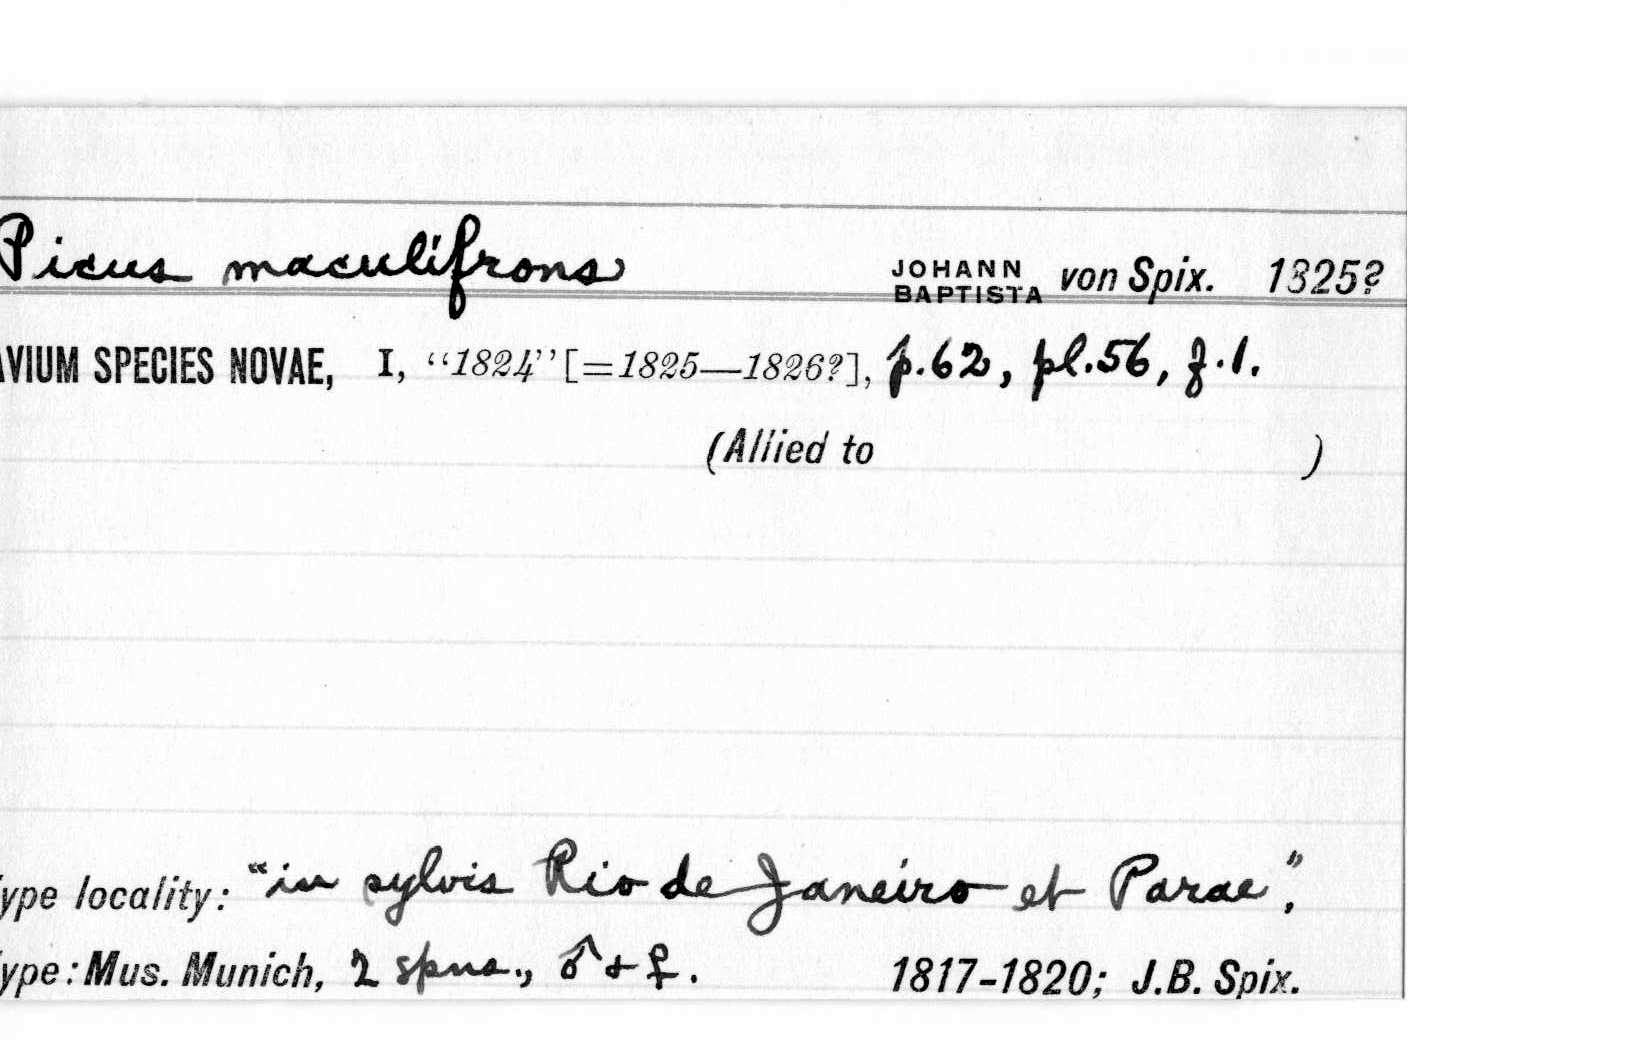 Picus maculifrons JOHANN BAPTISTA von Spix. 1825?
AVIUM SPECIES NOVAE, I, “1824” [=1825—1826?], p.62, pl.56, f.1.
(Allied to )
ype locality: "in sylvis Rio de Janeiro et Parae",
ype: Mus. Munich, 2 spns., ♂ + ♀. 1817-1820; J.B. Spix.